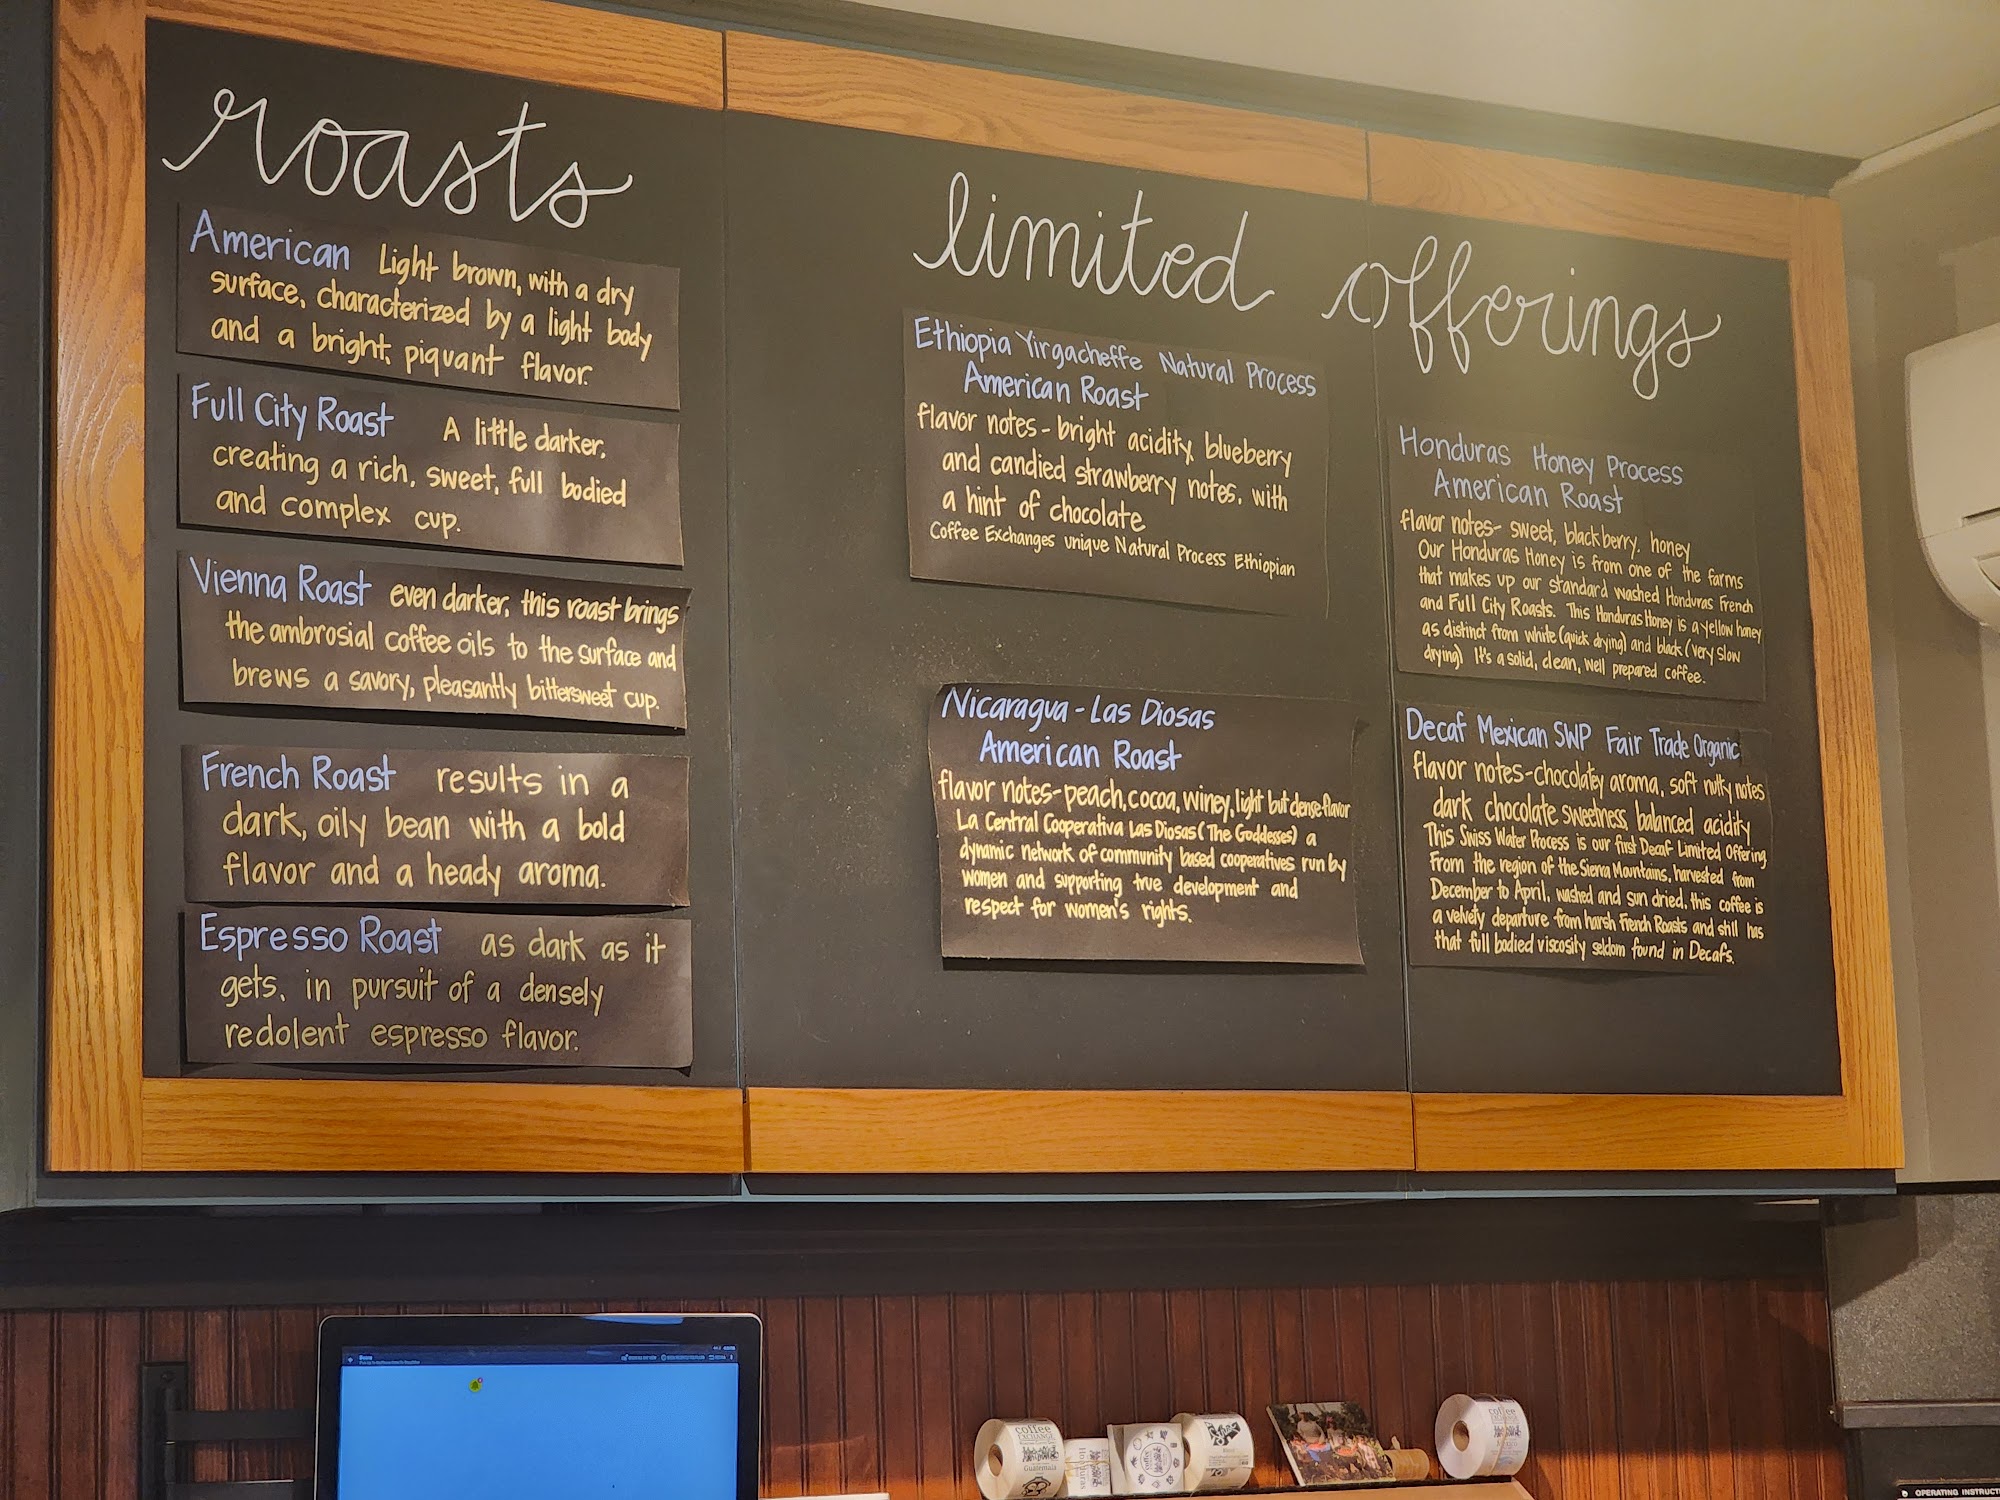 roasts
American Light brown, with a dry
surface, characterized by a light body
and a bright, piquant flavor.
Full City Roast A little darker,
creating a rich, sweet, full bodied
and complex cup.
Vienna Roast even darker, this roast brings
the ambrosial coffee oils to the surface and
brews a savory, pleasantly bittersweet cup.
French Roast results in a
dark, oily bean with a bold
flavor and a heady aroma.
Espresso Roast as dark as it
gets, in pursuit of a densely
redolent espresso flavor.
limited offerings
Ethiopia Yirgacheffe Natural Process
American Roast
flavor notes - bright acidity, blueberry
and candied strawberry notes, with
a hint of chocolate
Coffee Exchanges unique Natural Process Ethiopian
Nicaragua - Las Diosas
American Roast
flavor notes - peach, cocoa, winey, light but dense flavor
La Central Cooperativa Las Diosas (The Goddesses) a
dynamic network of community based cooperatives run by
women and supporting true development and
respect for women's rights.
Honduras Honey Process
American Roast
flavor notes - sweet, blackberry, honey
Our Honduras Honey is from one of the farms
that makes up our standard washed Honduras French
and Full City Roasts. This Honduras Honey is a yellow honey
as distinct from white (quick drying) and black (very slow
drying) It's a solid, clean, well prepared coffee.
Decaf Mexican SWP Fair Trade Organic
flavor notes - chocolatey aroma, soft nutty notes
dark chocolate sweetness, balanced acidity
This Swiss Water Process is our first Decaf Limited Offering
From the region of the Sierra Mountains, harvested from
December to April, washed and sun dried, this coffee is
a velvety departure from harsh French Roasts and still has
that full bodied viscosity seldom found in Decafs.
coffee
EXCHANGE
Guatemala
Honduras
coffee
EXCHANGE
Mexico
OPERATING INSTRUCT